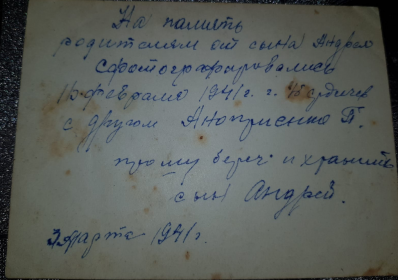 На память
родителям от сына Андрея
Сфотографировались
16 февраля 1941 г. г.
с другом Аноприенко П.
прошу береч и хранить
сын Андрей.
3 марта 1941г.